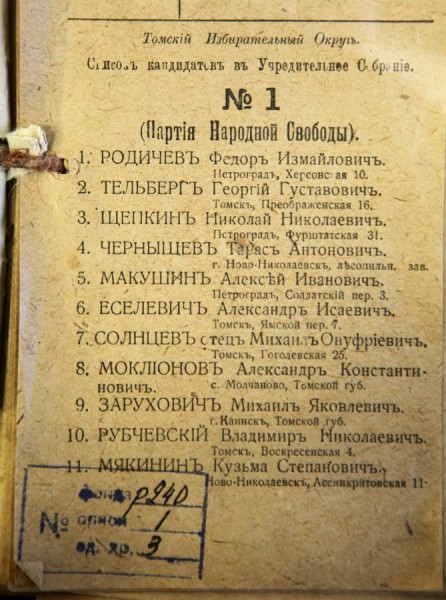 Томскій Избирательный Округъ.
Списокъ кандидатовъ въ Учредительное Собраніе.
№ 1
(Партія Народной Свободы).
1. РОДИЧЕВЪ Федоръ Измайловичъ.
Петроградъ, Херсонская 10.
2. ТЕЛЬБЕРГЪ Георгій Густавовичъ.
Томскъ, Преображенская 16.
3. ЩЕПКИНЪ Николай Николаевичъ.
Петроградъ, Фурштатская 31.
4. ЧЕРНЫШЕВЪ Тарасъ Антоновичъ.
г. Ново-Николаевскъ, лѣсопильн. зав.
5. МАКУШИНЪ Алексѣй Ивановичъ.
Петроградъ, Солдатскій пер. 3.
6. ЕСЕЛЕВИЧЪ Александръ Исаевичъ.
Томскъ, Ямской пер. 7.
7. СОЛНЦЕВЪ отецъ Михаилъ Онуфріевичъ.
Томскъ, Гоголевская 25.
8. МОКЛІОНОВЪ Александръ Константи-
новичъ. с. Молчаново, Томской губ.
9. ЗАРУХОВИЧЪ Михаилъ Яковлевичъ.
г. Каинскъ, Томской губ.
10. РУБЧЕВСКІЙ Владимиръ Николаевичъ.
Томскъ, Воскресенская 4.
11. МЯКИНИНЪ Кузьма Степановичъ.
Ново-Николаевскъ, Ассинкритовская 11
фонда р240
№ описи 1
ед. хр. 3